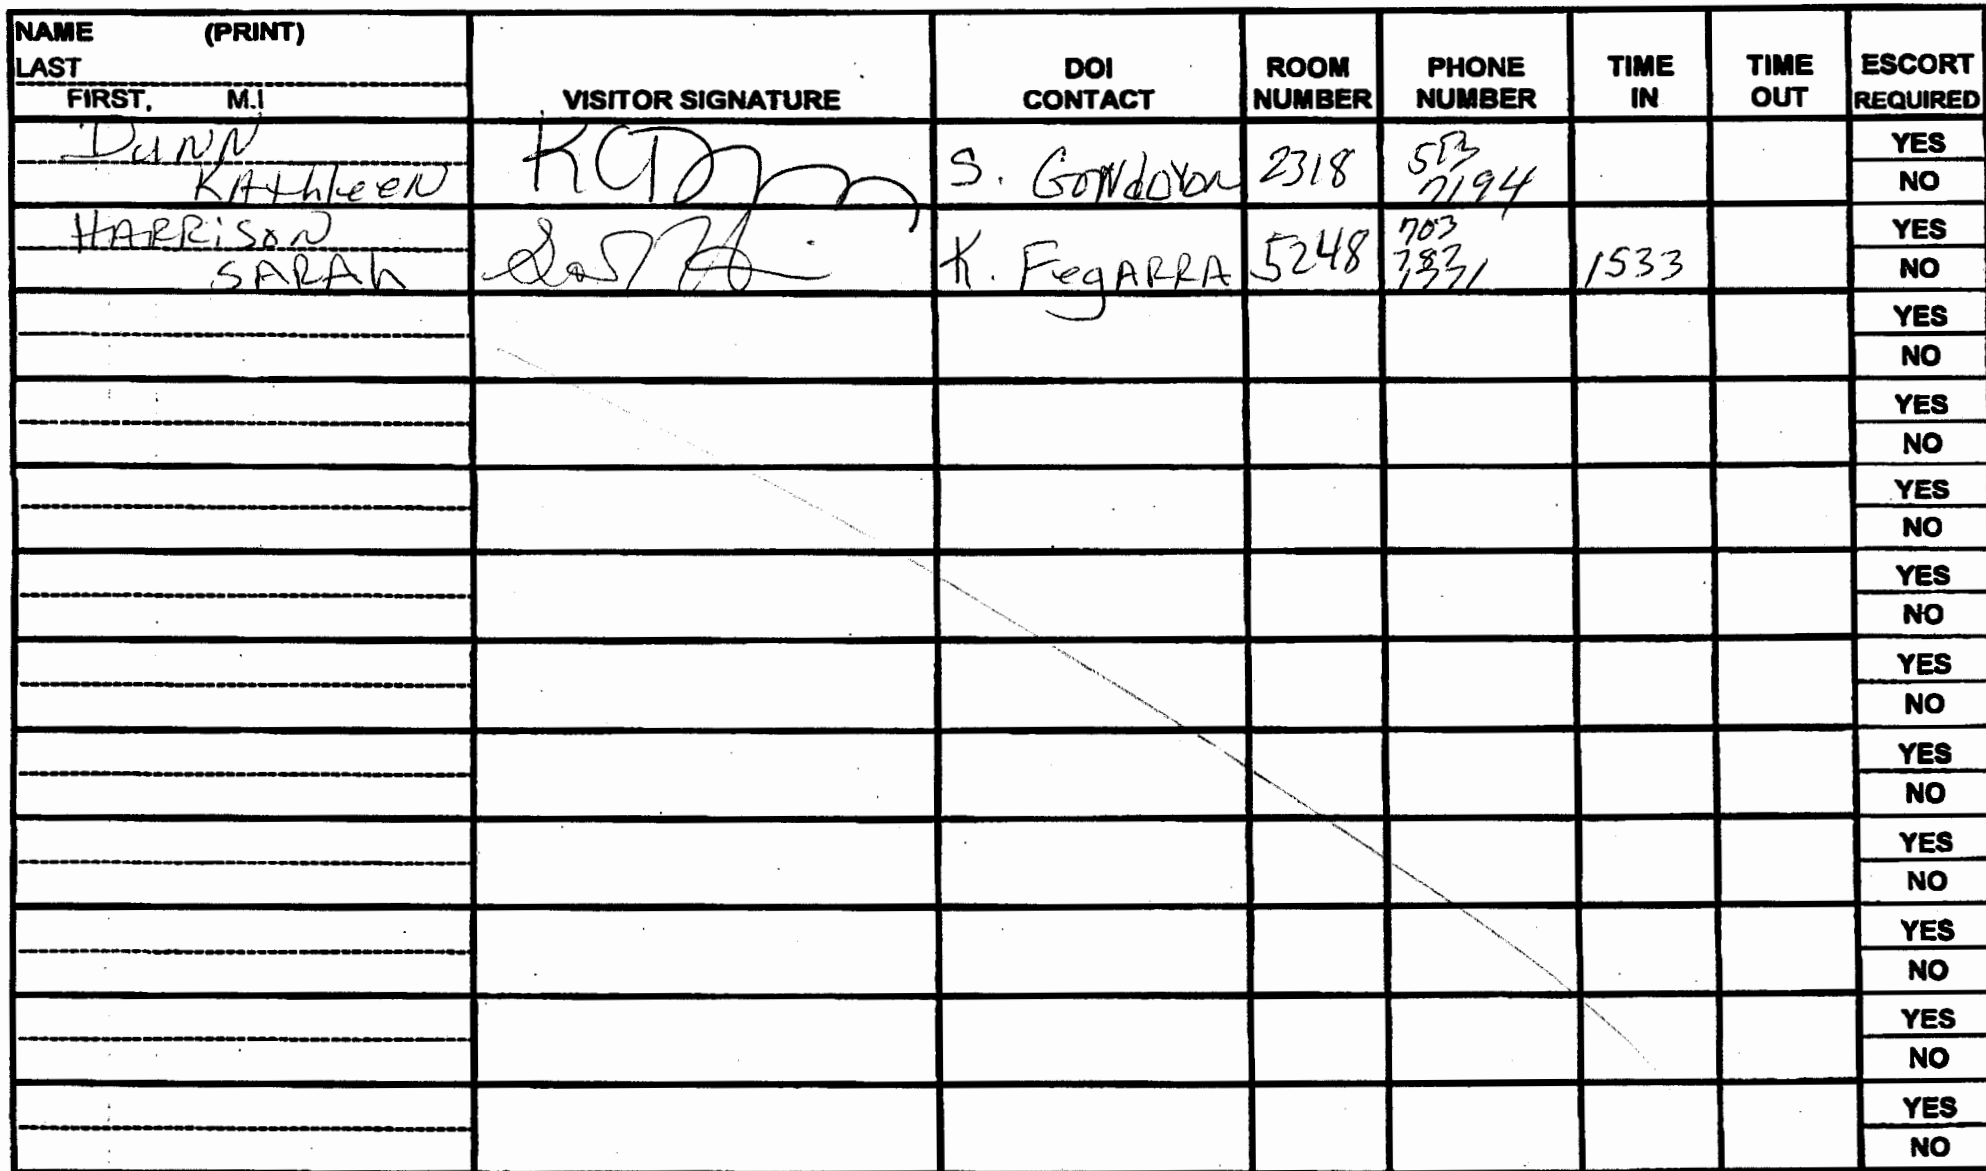 NAME (PRINT)
LAST
FIRST, M.I
VISITOR SIGNATURE
DOI
CONTACT
ROOM
NUMBER
PHONE
NUMBER
TIME
IN
TIME
OUT
ESCORT
REQUIRED
Dunn
Kathleen
S.
2318
7194
YES
NO
HARRiSON
SARAh
K. FegARRA
5248
703
1533
YES
NO
YES
NO
YES
NO
YES
NO
YES
NO
YES
NO
YES
NO
YES
NO
YES
NO
YES
NO
YES
NO